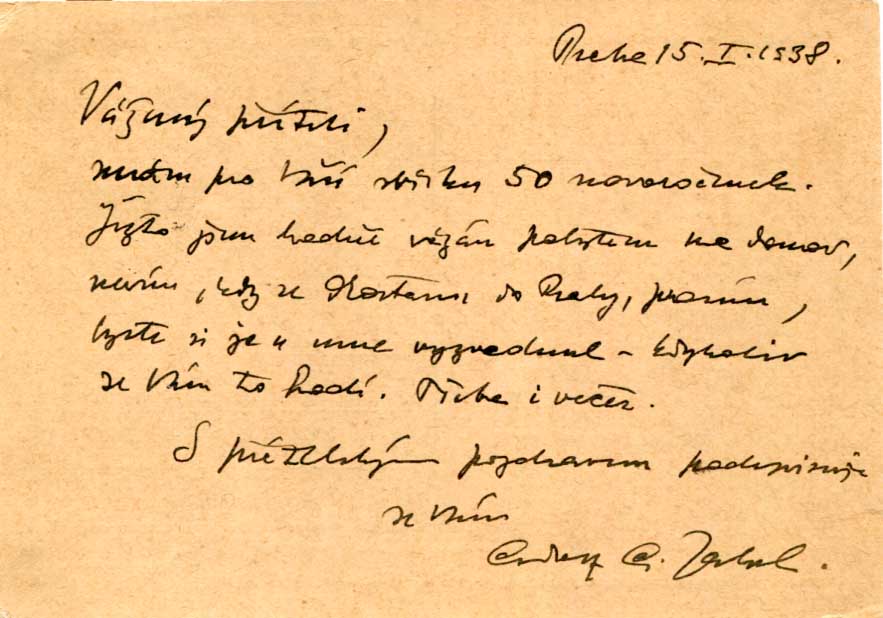 Praha 15. I. 1938.
Vážený příteli,
mám pro Vaši sbírku 50 novoročenek.
Jižto jsem hodně vázán pobytem na domov,
nevím, kdy se dostanu do Prahy, prosím,
byste si je u mne vyzvednul – kdykoliv
se Vám to hodí. Třeba i večer.
S přátelským pozdravem podepisuje
se Vám